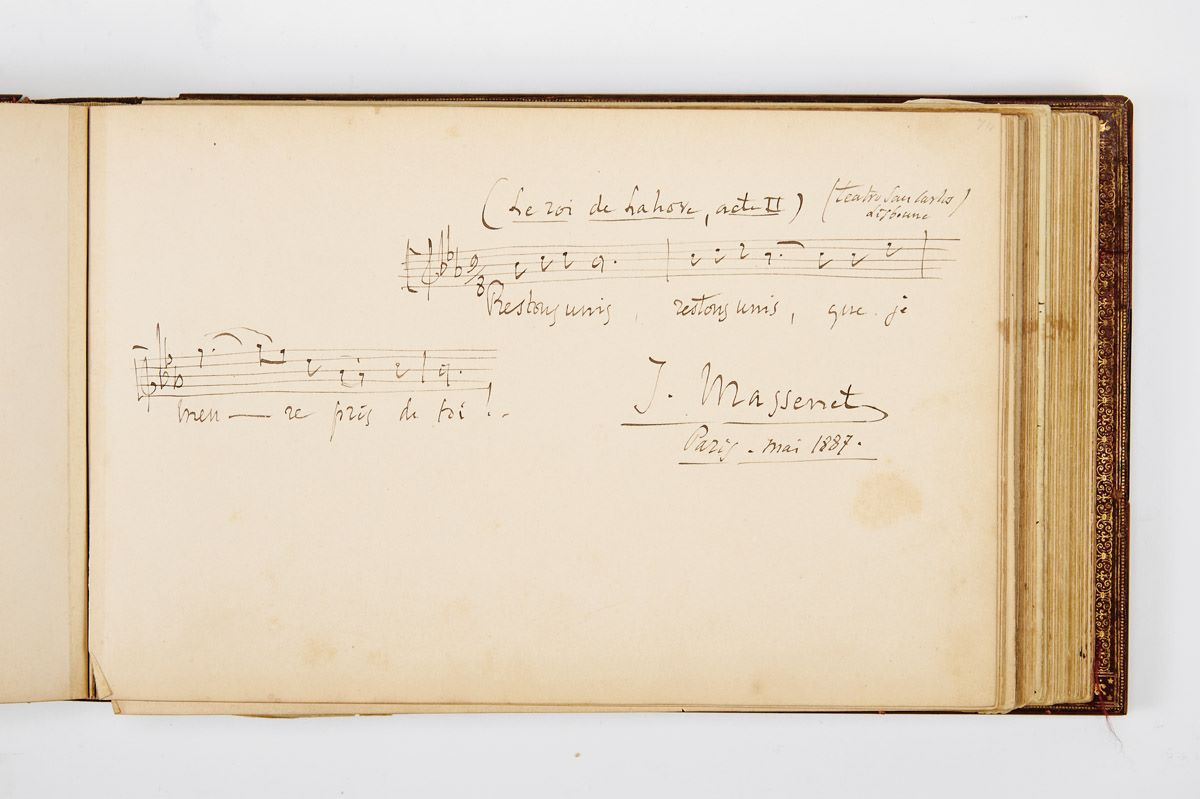 (Le roi de Lahore, acte II) (teatro San Carlos)
Lisbonne
9/8
Restons unis, restons unis, que je
meu — re près de toi !
J. Massenet
Paris - mai 1887.